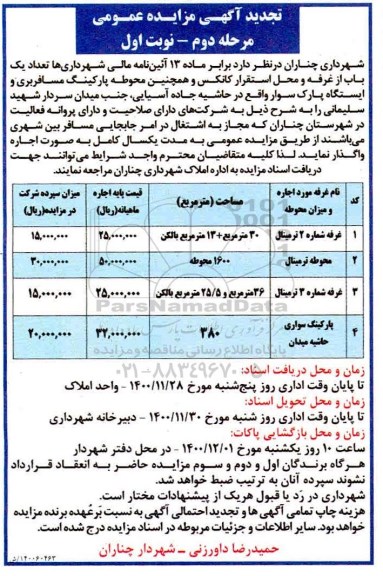 تجدید آگهی مزایده عمومی
مرحله دوم – نوبت اول
شهرداری چناران درنظر دارد برابر ماده ۱۳ آئین‌نامه مالی شهرداری‌ها تعداد یک
باب از غرفه و محل استقرار کانکس و همچنین محوطه پارکینگ مسافربری و
ایستگاه پارک سوار واقع در حاشیه جاده آسیایی، جنب میدان سردار شهید
سلیمانی را به شرح ذیل به شرکت‌های دارای صلاحیت و دارای پروانه فعالیت
در شهرستان چناران که مجاز به اشتغال در امر جابجایی مسافر بین شهری
می‌باشند از طریق مزایده عمومی به مدت یکسال کامل به صورت اجاره
واگذار نماید. لذا کلیه متقاضیان محترم واجد شرایط می توانند جهت
دریافت اسناد مزایده به اداره املاک شهرداری چناران مراجعه نمایند.
کد نام غرفه مورد اجاره و میزان محوطه مساحت (مترمربع) قیمت پایه اجاره ماهیانه(ریال) میزان سپرده شرکت در مزایده(ریال)
۱ غرفه شماره ۲ ترمینال ۳۰ مترمربع+۱۳ مترمربع بالکن ۲۵,۰۰۰,۰۰۰ ۱۵,۰۰۰,۰۰۰
۲ محوطه ترمینال ۱۶۰۰ محوطه ۵۰,۰۰۰,۰۰۰ ۳۰,۰۰۰,۰۰۰
۳ غرفه شماره ۳ ترمینال ۳۶مترمربع و ۲۵/۵ مترمربع بالکن ۲۵,۰۰۰,۰۰۰ ۱۵,۰۰۰,۰۰۰
۴ پارکینگ سواری حاشیه میدان ۳۸۰ ۳۲,۰۰۰,۰۰۰ ۲۰,۰۰۰,۰۰۰
ParsNamadData
۰۲۱-۸۸۳۴۹۶۷۰
زمان و محل دریافت اسناد:
تا پایان وقت اداری روز پنج‌شنبه مورخ ۱۴۰۰/۱۱/۲۸ - واحد املاک
زمان و محل تحویل اسناد:
تا پایان وقت اداری روز شنبه مورخ ۱۴۰۰/۱۱/۳۰ - دبیرخانه شهرداری
زمان و محل بازگشایی پاکات:
ساعت ۱۰ روز یکشنبه مورخ ۱۴۰۰/۱۲/۰۱ - در محل دفتر شهردار
هرگاه برندگان اول و دوم و سوم مزایده حاضر به انعقاد قرارداد
نشوند سپرده آنان به ترتیب ضبط خواهد شد.
شهرداری در رَد یا قبول هریک از پیشنهادات مختار است.
هزینه چاپ تمامی آگهی ها و تجدید احتمالی آگهی به نسبت بَرعُهده برنده مزایده
خواهد بود. سایر اطلاعات و جزئیات مربوطه در اسناد مزایده درج شده است.
حمیدرضا داورزنی – شهردار چناران
۱۴۰۰۶۰۴۶۳/د